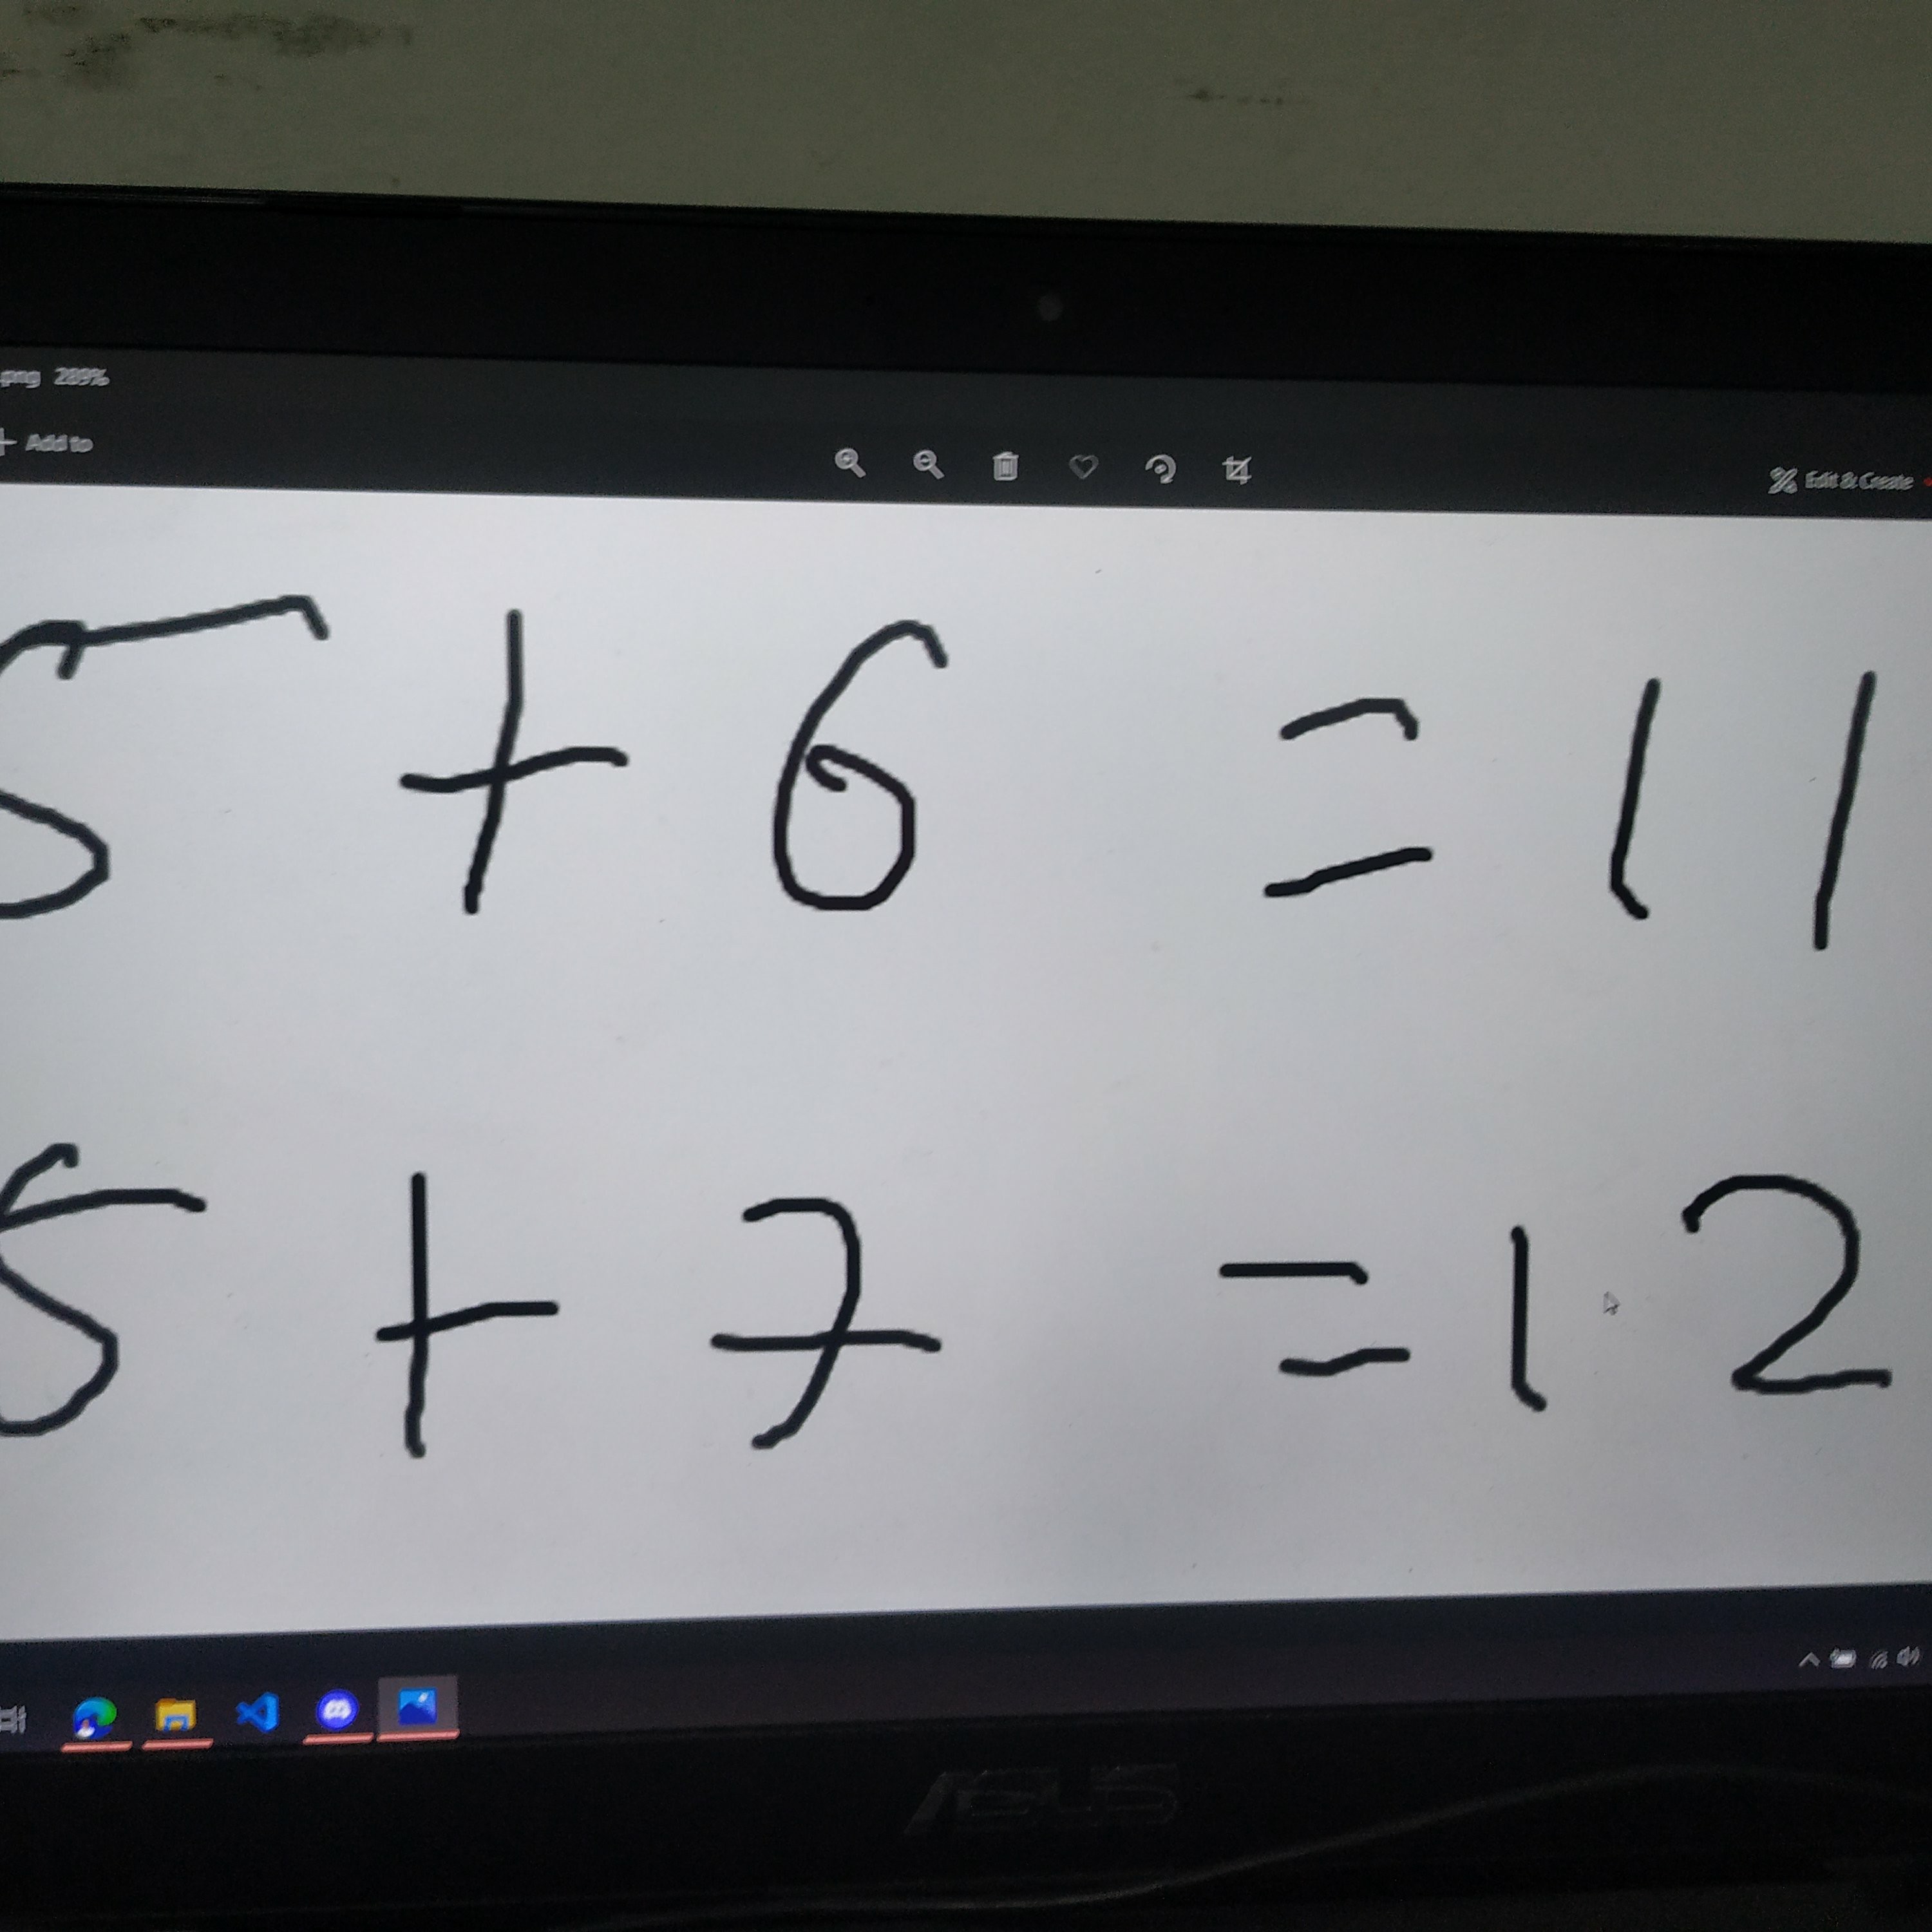 .png 289%
+ Add to
Edit & Create
5 + 6 = 11
5 + 7 = 12
ASUS